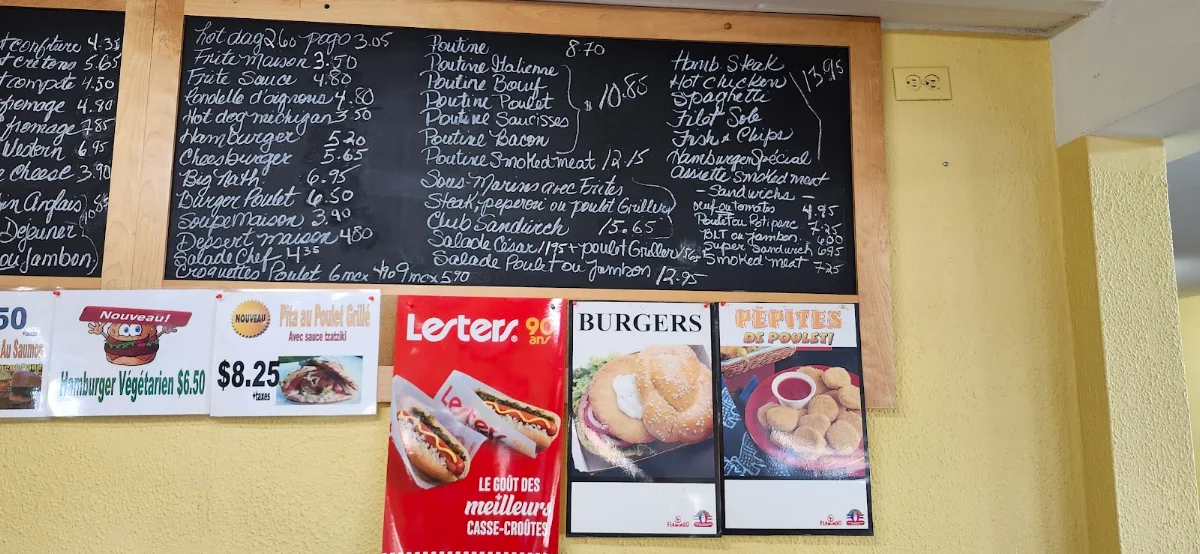 confiture 4.35
cretons 5.65
compote 4.50
fromage 4.90
fromage 7.85
Western 6.95
cheese 3.90
Anglais
Dejeuner
ou Jambon)
hot dog 2.60 pogo 3.05
Frite maison 3.50
Frite Sauce 4.80
Rondelle d'oignons 4.80
Hot dog michigan 3.50
Hamburger 5.20
Cheesburger 5.65
Big Nath 6.95
Burger Poulet 6.50
Soupe maison 3.90
Dessert maison 4.80
Salade Chef 4.35
Croquettes Poulet 6 mcx 4.70 9 mcx 5.90
Poutine 8.70
Poutine Italienne
Poutine Bœuf
Poutine Poulet
Poutine Saucisses
Poutine Bacon
$ 10.85
Poutine Smoked meat 12.15
Sous-Marins avec Frites
Steak, peperoni ou poulet Grillery
Club Sandwich 15.65
Salade César 11.95 + poulet Griller
Salade Poulet ou Jambon 12.95
Hamb. Steak
Hot chicken
Spaghetti
Filet Sole
Fish & Chips
Hamburger Spécial
13.95
Assiette Smoked meat
- Sandwichs -
œuf ou Tomates 4.95
Poulet ou Rotiparc 7.25
BLT ou Jambon 6.00
Super Sandwich 6.95
Smoked meat 7.25
50
Au Saumon
Nouveau!
Hamburger Végétarien $6.50
NOUVEAU
Pita au Poulet Grillé
Avec sauce tzatziki
$8.25
+taxes
Lesters. 90
ans
Lesters
LE GOÛT DES
meilleurs
CASSE-CROÛTES
BURGERS
FLAMINGO
PÉPITES
DE POULET!
FLAMINGO